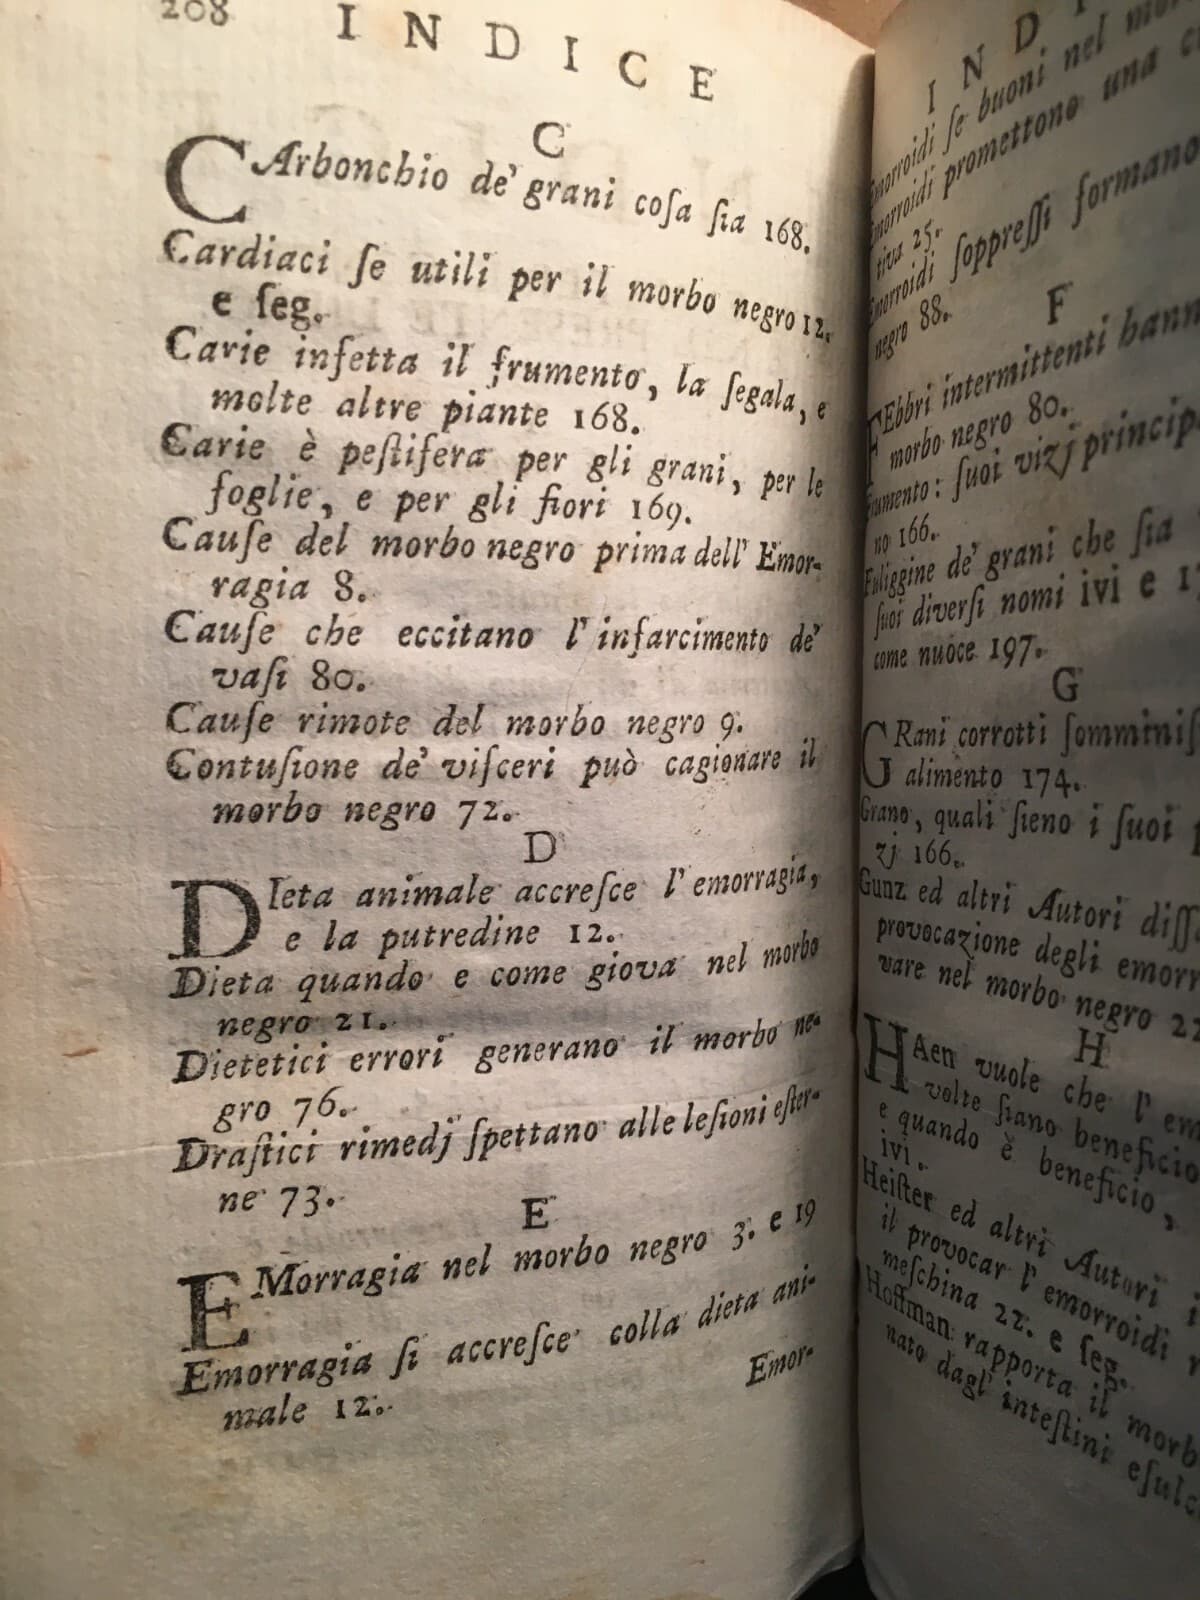 208 INDICE
C
CArbonchio de' grani coſa ſia 168.
Cardiaci ſe utili per il morbo negro 12.
e ſeg.
Carie infetta il frumento, la ſegala, e
molte altre piante 168.
Carie è peſtifera per gli grani, per le
foglie, e per gli fiori 169.
Cauſe del morbo negro prima dell' Emor-
ragia 8.
Cauſe che eccitano l' infarcimento de'
vaſi 80.
Cauſe rimote del morbo negro 9.
Contuſione de' viſceri può cagionare il
morbo negro 72.
D
DIeta animale accreſce l' emorragia,
e la putredine 12.
Dieta quando e come giova nel morbo
negro 21.
Dietetici errori generano il morbo ne-
gro 76.
Draſtici rimedj ſpettano alle leſioni eſter-
ne 73.
E
EMorragia nel morbo negro 3. e 19
Emorragia ſi accreſce colla dieta ani-
male 12.
Emor-
I N D I
Emorroidi ſe buoni nel
Emorroidi promettono una
tiva 25.
Emorroidi ſoppreſſi formano
negro 88.
F
FEbbri intermittenti
morbo negro 80.
Frumento: ſuoi vizj
no 166.
Fuliggine de' grani che ſia
ſuoi diverſi nomi ivi e
come nuoce 197.
G
GRani corrotti
alimento 174.
Grano, quali ſieno i ſuoi
zj 166.
Gunz ed altri Autori
provocazione degli
vare nel morbo negro 22
H
HAen vuole che l'
volte ſiano beneficio
e quando è beneficio,
ivi.
Heiſter ed altri Autori
il provocar l' emorroidi
meſchina 22. e ſeg.
Hoffman rapporta il
nato dagl' inteſtini